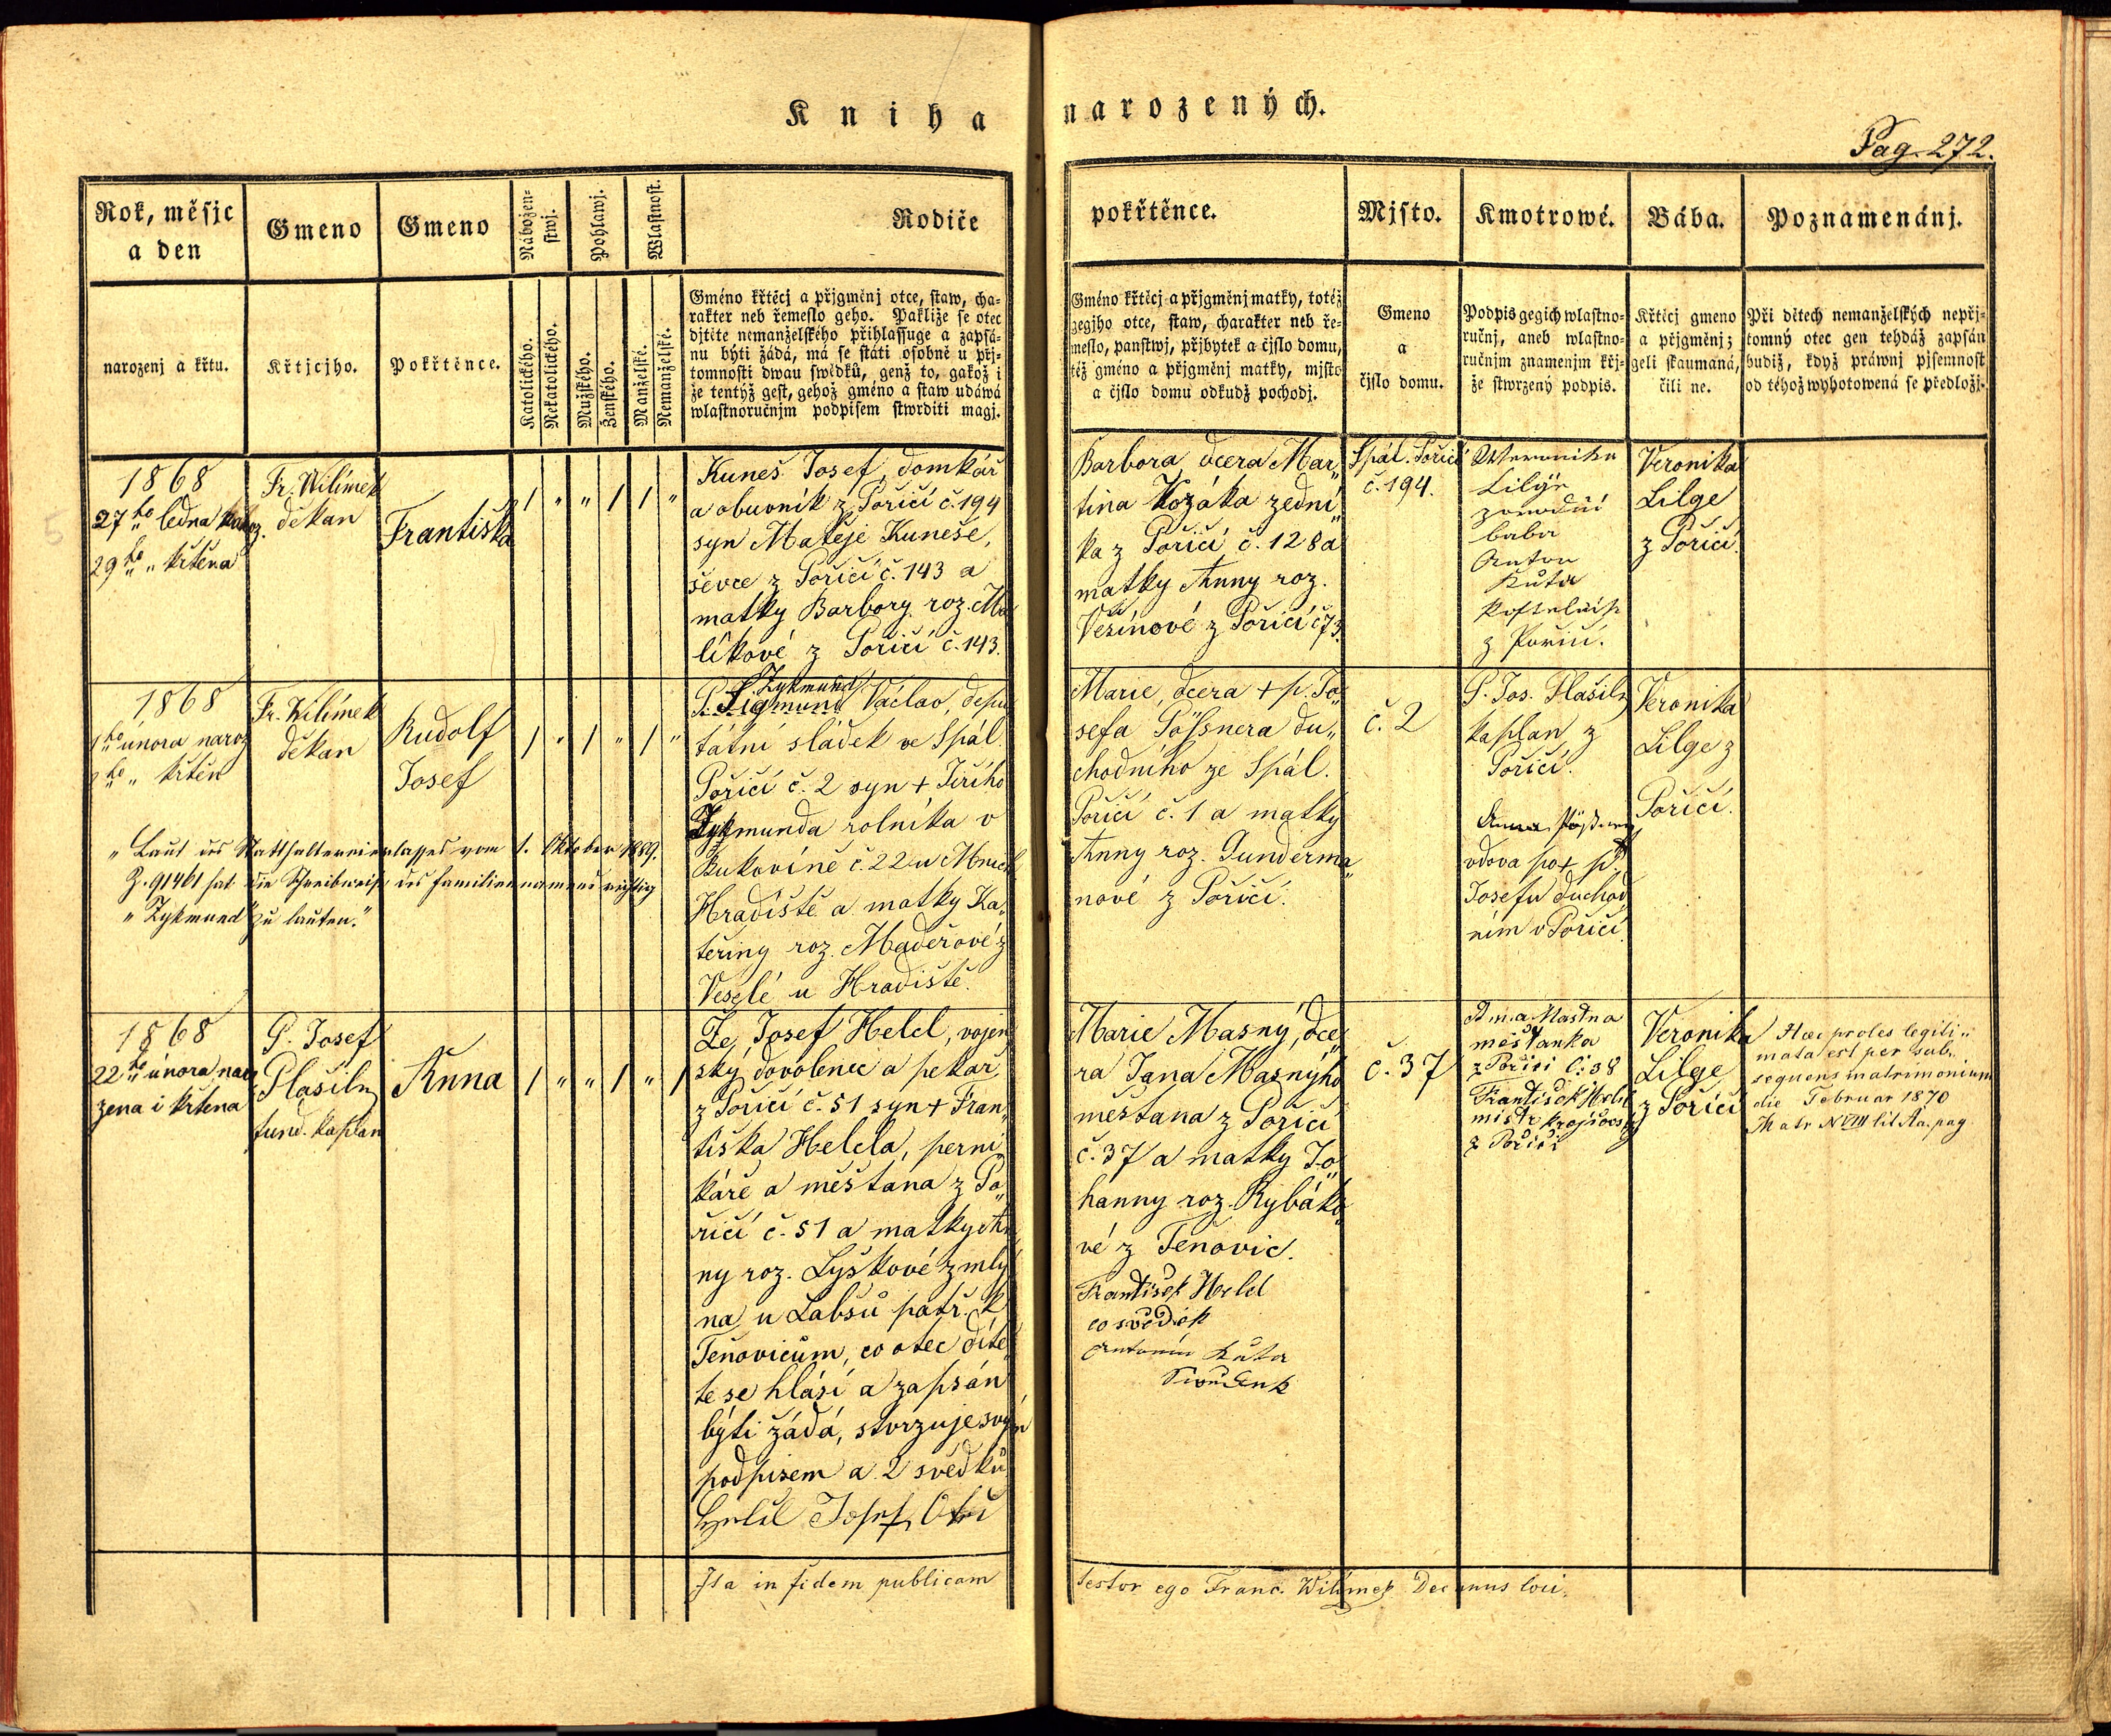 Kniha narozených.
Pag. 272.
Rok, měsjc
a den
narozenj a křtu.
Gmeno
Křtjcjho.
Gmeno
Pokřtěnce.
Nábožen-
stwj.
Katolického.
Nekatolického.
Pohlawj.
Mužského.
Ženského.
Wlastnost.
Manželské.
Nemanželské.
Rodiče
Gméno křtěcj a přjgmenj otce, staw, cha-
rakter neb řemeslo geho. Pakliže se otec
djtěte nemanželského přihlassuge a zapsá-
nu býti žádá, má se státi osobně u přj-
tomnosti dwau swědků, genž to, gakož i
že tentýž gest, gehož gméno a staw udáwá
wlastnoručnjm podpisem stwrditi magj.
pokřtěnce.
Gméno křtěcj a přjgmenj matky, totéž
gegjho otce, staw, charakter neb ře-
meslo, panstwj, přjbytek a čjslo domu,
též gméno a přjgmenj matky, mjsto
a čjslo domu odkudž pochodj.
Mjsto.
Gmeno
a
čjslo domu.
Kmotrowé.
Podpis gegich wlastno-
ručnj, aneb wlastno-
ručnjm znamenjm křj-
že stwrzený podpis.
Bába.
Křtěcj gmeno
a přjgmenj;
geli skaumaná,
čili ne.
Poznamenánj.
Při dětech nemanželských nepřj-
tomný otec gen tehdáž zapsán
budiž, když práwnj pjsemnost
od téhož wyhotowená se předložj.
1868
27ho ledna naroz.
29ho " křtěna
Fr. Wilímek
děkan
Františka
1 " " 1 1 "
Kuneš Josef, domkář
a obuvník z Poříčí č. 194
syn Matěje Kuneše,
ševce z Poříčí č. 143 a
matky Barbory roz. Ma
líkové z Poříčí č. 143.
Barbora, dcera Mar„
tina Kozáka zední„
ka z Poříčí č. 128 a
matky Anny roz.
Vešínové z Poříčí č 73.
Spál. Poříčí
č. 194.
Weronika
Lilge
baba
Anton
Kůta
Kostelník
z Poříčí.
Veronika
Lilge
z Poříčí.
1868
1ho února naroz
2ho " křtěn
Fr. Wilímek
děkan
Rudolf
Josef
1 " 1 " 1 "
Zykmund
P. Sigmund Václav, depu
tátní sládek ve Spál.
Poříčí č. 2 syn + Jiřího
Zykmunda rolníka v
Bukovíně č. 22 u Mnich
Hradiště a matky Ka„
teřiny roz. Maděrové z
Veselé u Hradiště.
Marie, dcera + p. Jo„
sefa Pößnera dů„
chodního ze Spál.
Poříčí č. 1 a matky
Anny roz. Gunderma„
nové z Poříčí.
č. 2
P. Jos. Plašil
kaplan z
Poříčí.
Anna Pößner
vdova po + p.
Josefu důchod
ním v Poříčí.
Veronika
Lilge z
Poříčí.
„Laut des Statthaltereierlasses vom 1. Oktober 1889.
Z. 91461 hat die Schreibweise des Familiennamens richtig
„Zykmund" zu lauten."
1868
22ho února naro
zena i křtěna
P. Josef
Plašil
fund. kaplan
Anna
1 " " 1 " 1
Že, Josef Helcl, vojen
ský dovolenec a pekař
z Poříčí č. 51 syn + Fran„
tiška Helcla, perní„
káře a měšťana z Po„
říčí č. 51 a matky An„
ny roz. Lyskové z mlý
na u Labsů patř. k
Těnovicům, co otec dítě„
te se hlásí a zapsán
býti žádá, stvrzuje svým
podpisem a 2 svědků.
Helcl Josef,
Marie Masný, dce„
ra Jana Masnýho
měšťana z Poříčí
č. 37 a matky Jo„
hanny roz. Rybáko„
vé z Těnovic.
František Helcl
co svědek
Antonín Kůta
č. 37
Anna Mastna
měšťanka
z Poříčí č: 38
František Helcl
mistr krejčovský
z Poříčí
Veronika
Lilge
z Poříčí
Haec proles legiti„
mata est per sub„
sequens matrimonium
die Februar 1870
Matr N VIII lit Aa. pag
Ita in fidem publicam testor ego Franc. Wilímek Decanus loci.